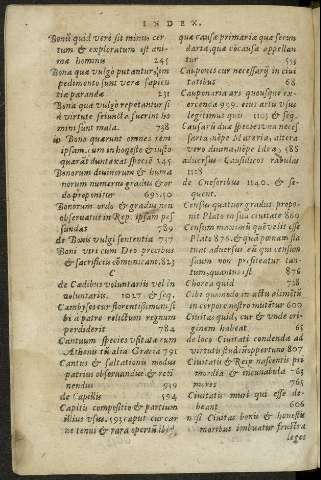 INDEX.
Bonū quid vere sit minus cer
tum & exploratum est ani-
mæ hominis 245
Bona quæ vulgò putantur, im
pedimento sunt veræ sapien
tiæ parandæ 231
Bona quæ vulgò repetantur si
à virtute seiuncta fuerint ho
mini sunt mala. 738
in Bono quærunt omnes rem
ipsam. cum in honesto & iusto
quærāt dūtaxat speciē 545
Bonorum divinorum & huma
norum numeru gradus & or
do proponitur 693.50
Bonorum ordo & gradus non
observatus in Rep. ipsam pes
sundat 789
de Bonis vulgi sententia 737
Boni viri cum Deo precibus
& sacrificiis cōmunicant. 823
C
de Cædibus voluntariis vel in
voluntariis. 1027 & seq.
Cambyses cur florentissimum si
bi a patre relictum regnum
perdiderit 784
Cantuum species vsitatæ cum
Athenis tū alia Græcia 791
Cantus & saltationis modus
patrius observandus & reti-
nendus 939
de Capillis 594
Capitis compositio & partium
illius vsus. 593 caput cur car
ne tenui & rara opertū ibid.
quæ causæ primariæ quæ secun
dariæ, quæ cōcausæ appellan
tur 555
Caupones cur necessarij in civi
tatibus 68
Cauponaria ars quousque ex-
ercenda 939. eius artis vsus
legitimus quis 1105 & seq.
Causarū duæ species vna neces
saria nēpe Materia, altera
vero divina nēpe Idea. 585
adversus Causidicos rabulas
1128
de Censoribus 1140. & se-
quent.
Census quatuor gradus propo-
nit Plato in sua civitate 869
Censum maximū quē velit esse
Plato 876. & quā pœnam sta
tuat adversus eū qui censum
suum non profiteatur tan-
tum, quantus sit 876
Chorea quid 728
Cibo quomodo in actu alimētū
in corpore nostro mutētur 600
Civitas quid, cur & vnde ori-
ginem habeat 65
de loco Civitati condendæ ad
virtutis studiū opportuno 807
Civitatis & Reip. nascentis pri
mordia & incunabula 763
mores 765
Civitatis muri qui esse de-
beant 606
nisi Civitas bonis & honestis
moribus imbuatur frustra
leges